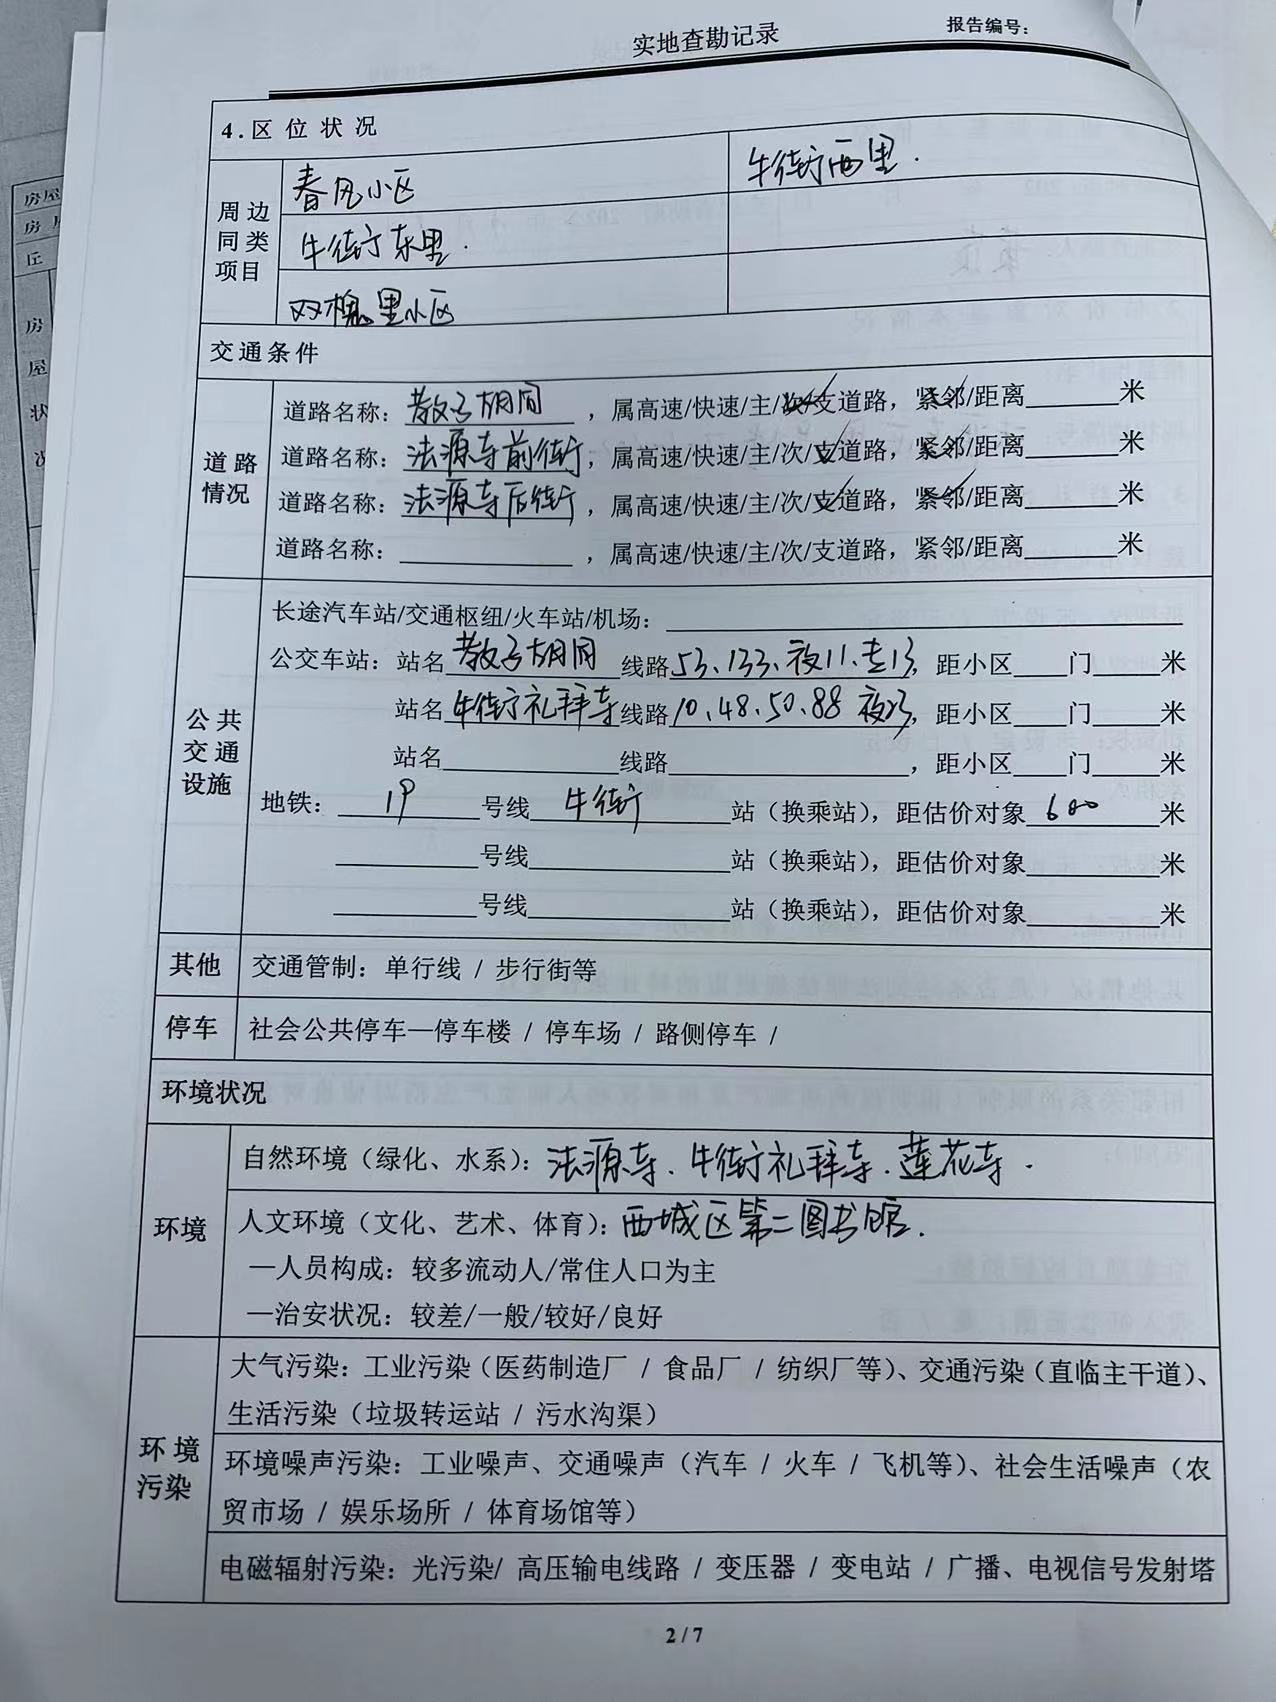 实地查勘记录
报告编号：
4.区位状况
周边同类项目
春风小区
牛街西里.
牛街东里.
双槐里小区
交通条件
道路情况
道路名称：教子胡同，属高速/快速/主/次/支道路，紧邻/距离____米
道路名称：法源寺前街，属高速/快速/主/次/支道路，紧邻/距离____米
道路名称：法源寺后街，属高速/快速/主/次/支道路，紧邻/距离____米
道路名称：____，属高速/快速/主/次/支道路，紧邻/距离____米
公共交通设施
长途汽车站/交通枢纽/火车站/机场：____
公交车站：站名教子胡同线路53、133、夜11、专13，距小区____门____米
站名牛街礼拜寺线路10、48、50、88 夜23，距小区____门____米
站名____线路____，距小区____门____米
地铁：19号线牛街站（换乘站），距估价对象600米
____号线____站（换乘站），距估价对象____米
____号线____站（换乘站），距估价对象____米
其他
交通管制：单行线 / 步行街等
停车
社会公共停车—停车楼 / 停车场 / 路侧停车 /
环境状况
环境
自然环境（绿化、水系）：法源寺、牛街礼拜寺、莲花寺.
人文环境（文化、艺术、体育）：西城区第二图书馆.
—人员构成：较多流动人/常住人口为主
—治安状况：较差/一般/较好/良好
环境污染
大气污染：工业污染（医药制造厂 / 食品厂 / 纺织厂等）、交通污染（直临主干道）、
生活污染（垃圾转运站 / 污水沟渠）
环境噪声污染：工业噪声、交通噪声（汽车 / 火车 / 飞机等）、社会生活噪声（农
贸市场 / 娱乐场所 / 体育场馆等）
电磁辐射污染：光污染/ 高压输电线路 / 变压器 / 变电站 / 广播、电视信号发射塔
2 / 7
房屋
房
丘
房
屋
状
况